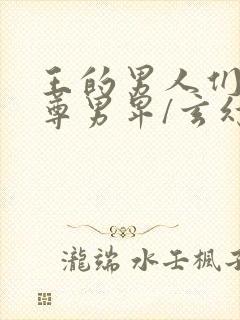 王的男人们
尊男卑/玄幻
瀧端 水壬楓子